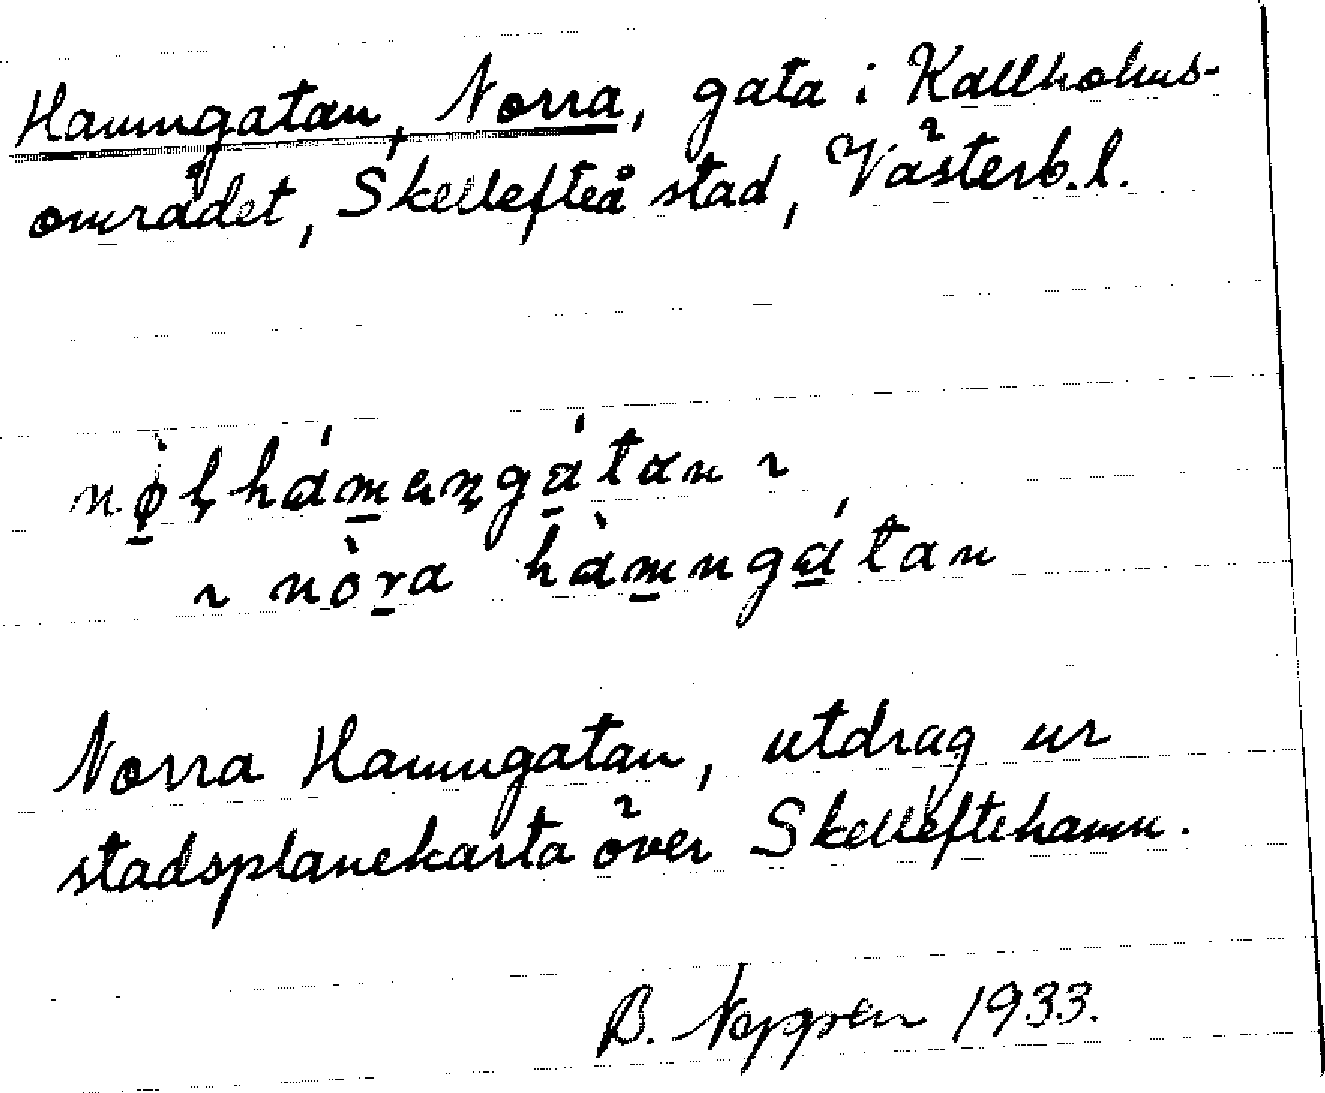 Hamngatan, Norra, gata i Kallholms-
området, Skellefteå stad, Västerb.l.
~ nòra hàmngátan
Norra Hamngatan, utdrag ur
stadsplanekarta över Skelleftehamn.
B. Nygren 1933.